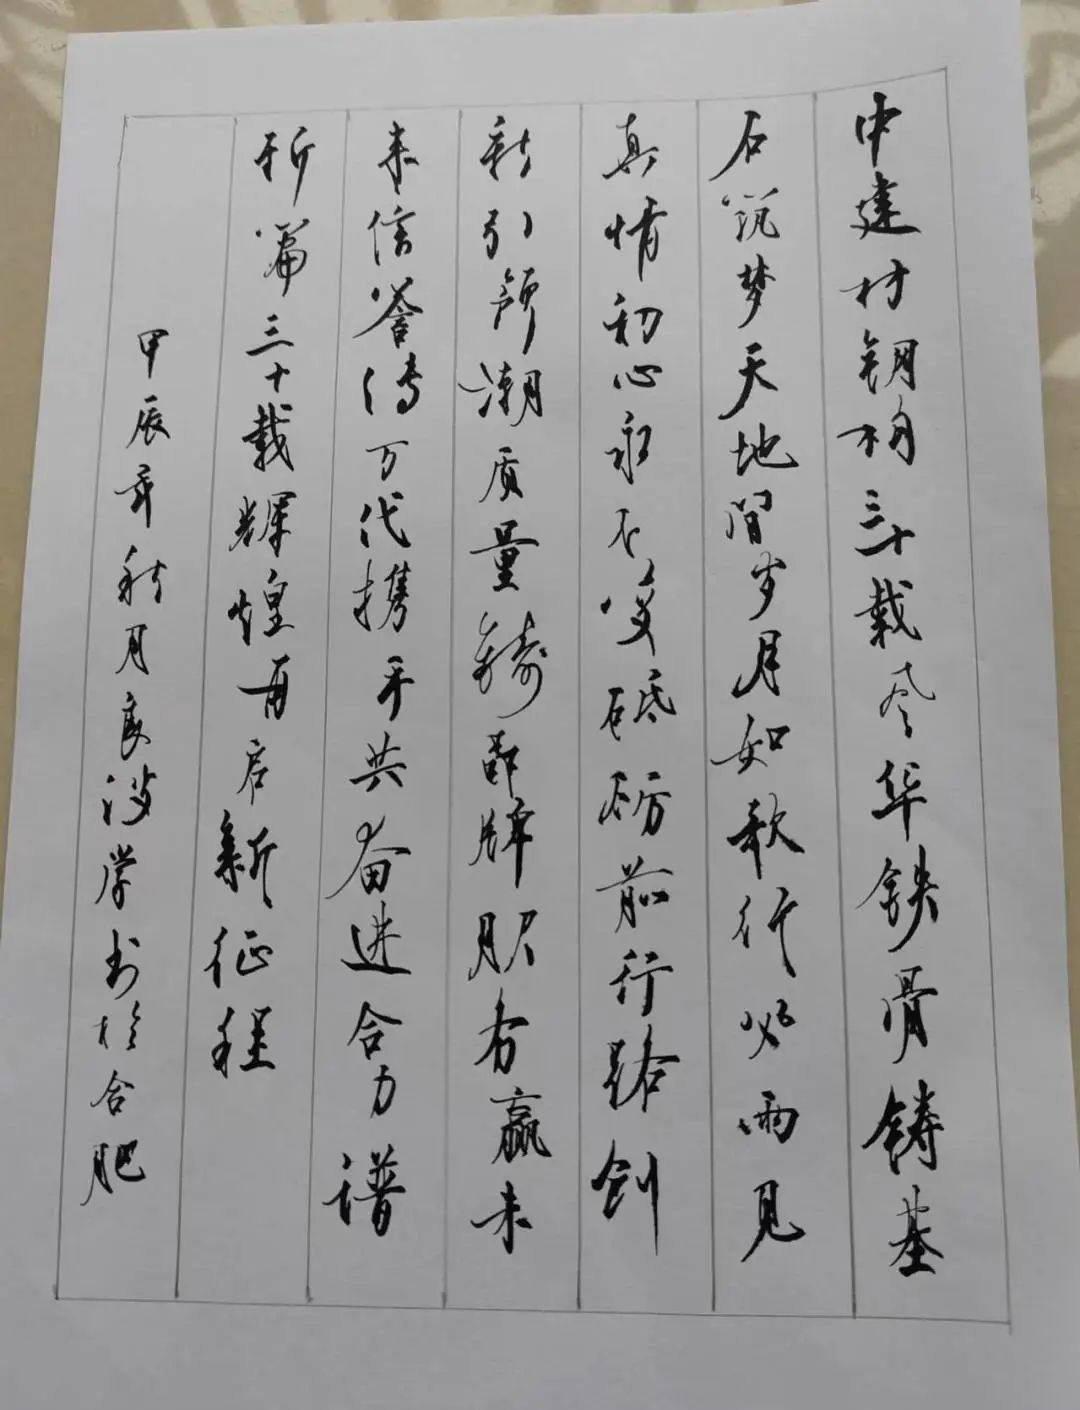 中建材钢构三十载风华铁骨铸基
石筑梦天地间岁月如歌行必雨见
真情初心永不变砥砺前行路创
新引领潮质量铸部牌服务赢未
来信誉传万代携手共奋进合力谱
新篇三十载辉煌再启新征程
甲辰年秋月良波学书于合肥